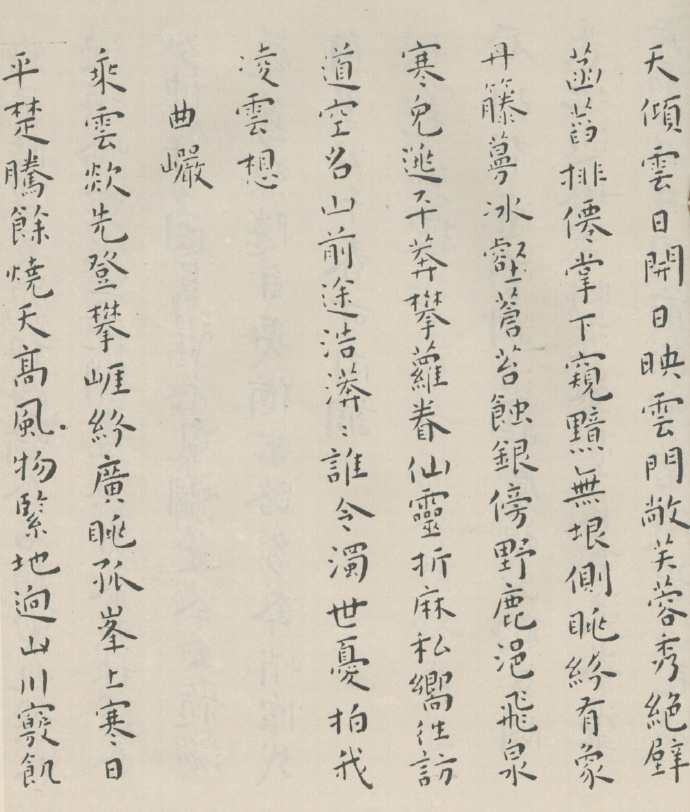 天傾雲日開日映雲門敞芙蓉秀絕壁
菡萏排僊掌下窺黯無垠側眺紛有象
丹籐蔓冰壑蒼苔蝕銀傍野鹿浥飛泉
寒兔逃平莽攀蘿眷仙靈折麻私嚮往訪
道空名山前途浩漭〻誰令濁世憂拍我
凌雲想
曲巖
乘雲欻先登攀崕紛廣眺孤峯上寒日
平楚騰餘燒天高風物緊地迥山川窈飢